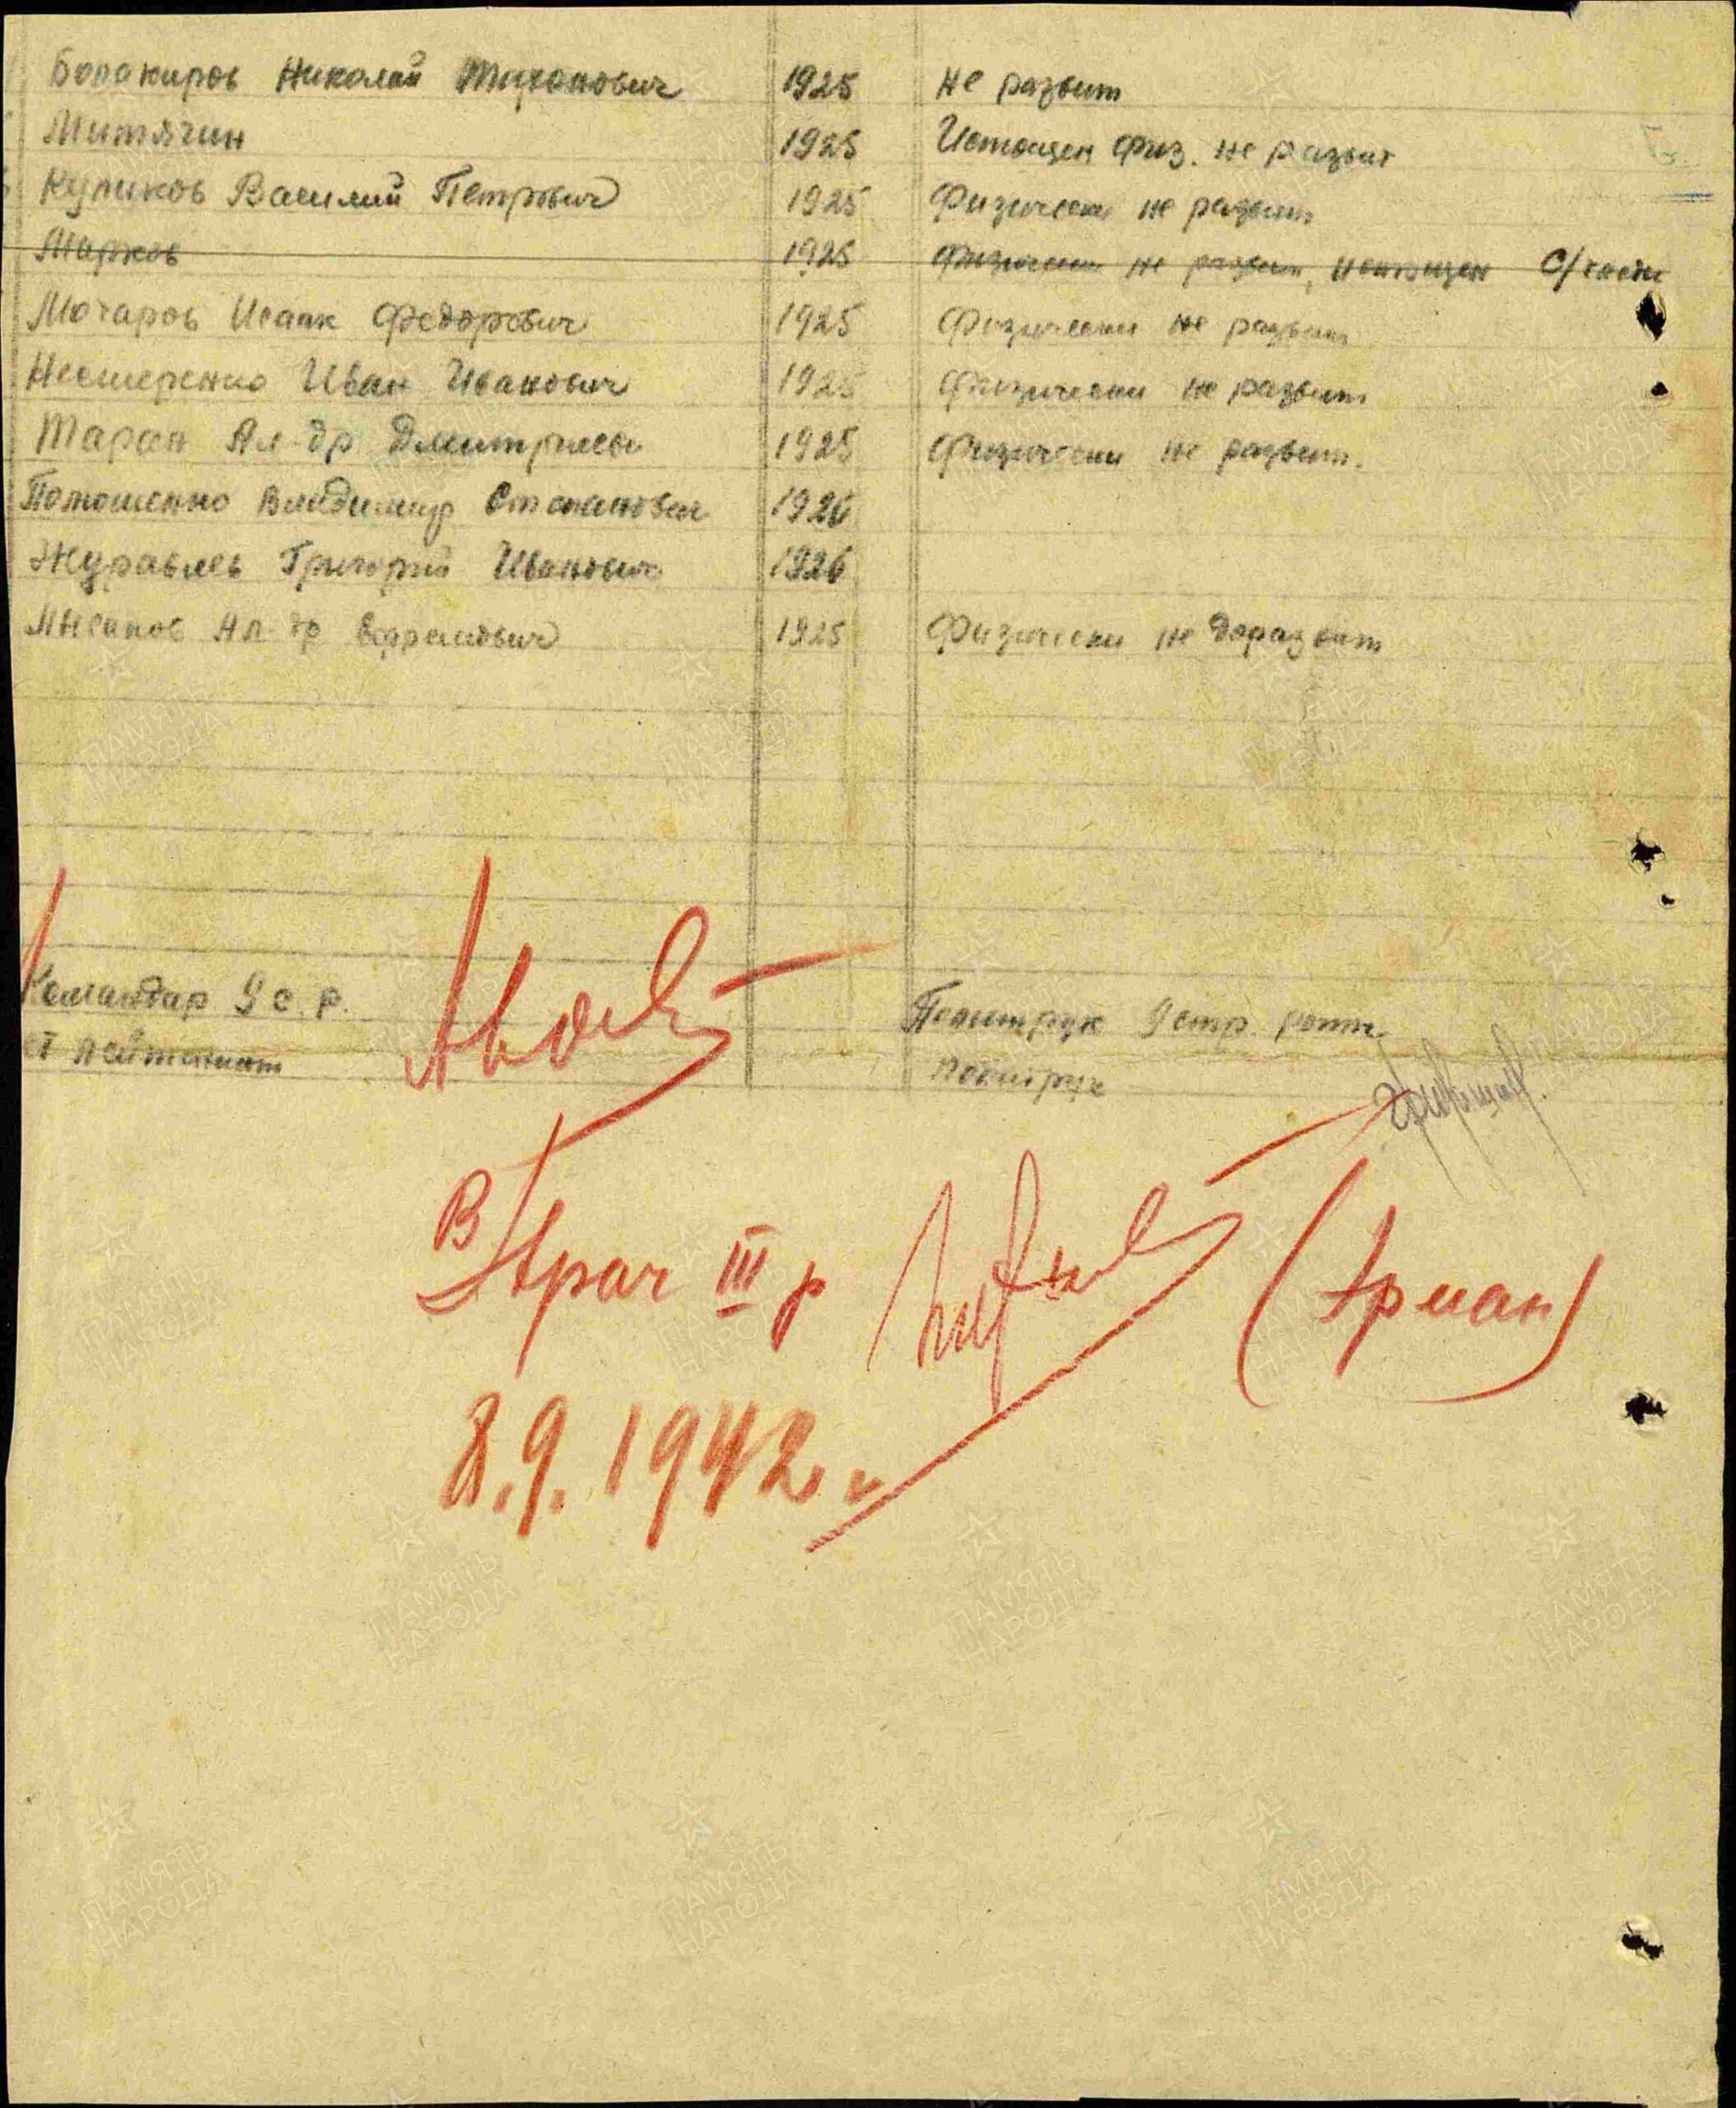 Бопакиров Николай Тихонович 1925 не развит
Митячин 1925 Истощен физ. не развит
Куликов Василий Петрович 1925 Физически не развит
Марков 1925 Физически не развит, истощен С/части
Мочаров Исаак Федорович 1925 Физически не развит
Нестеренко Иван Иванович 1925 Физически не развит
Таран Ал-др Дмитриев 1925 Физически не развит.
Полюшенко Владимир Степанович 1926
Журавлев Григорий Иванович 1926
Ал-др Ефремович 1925 Физически не доразвит
Командир 9 с. р. Политрук 9 стр. роты
ст лейтенант политрук
Врач III р (Арман)
8.9.1942 г